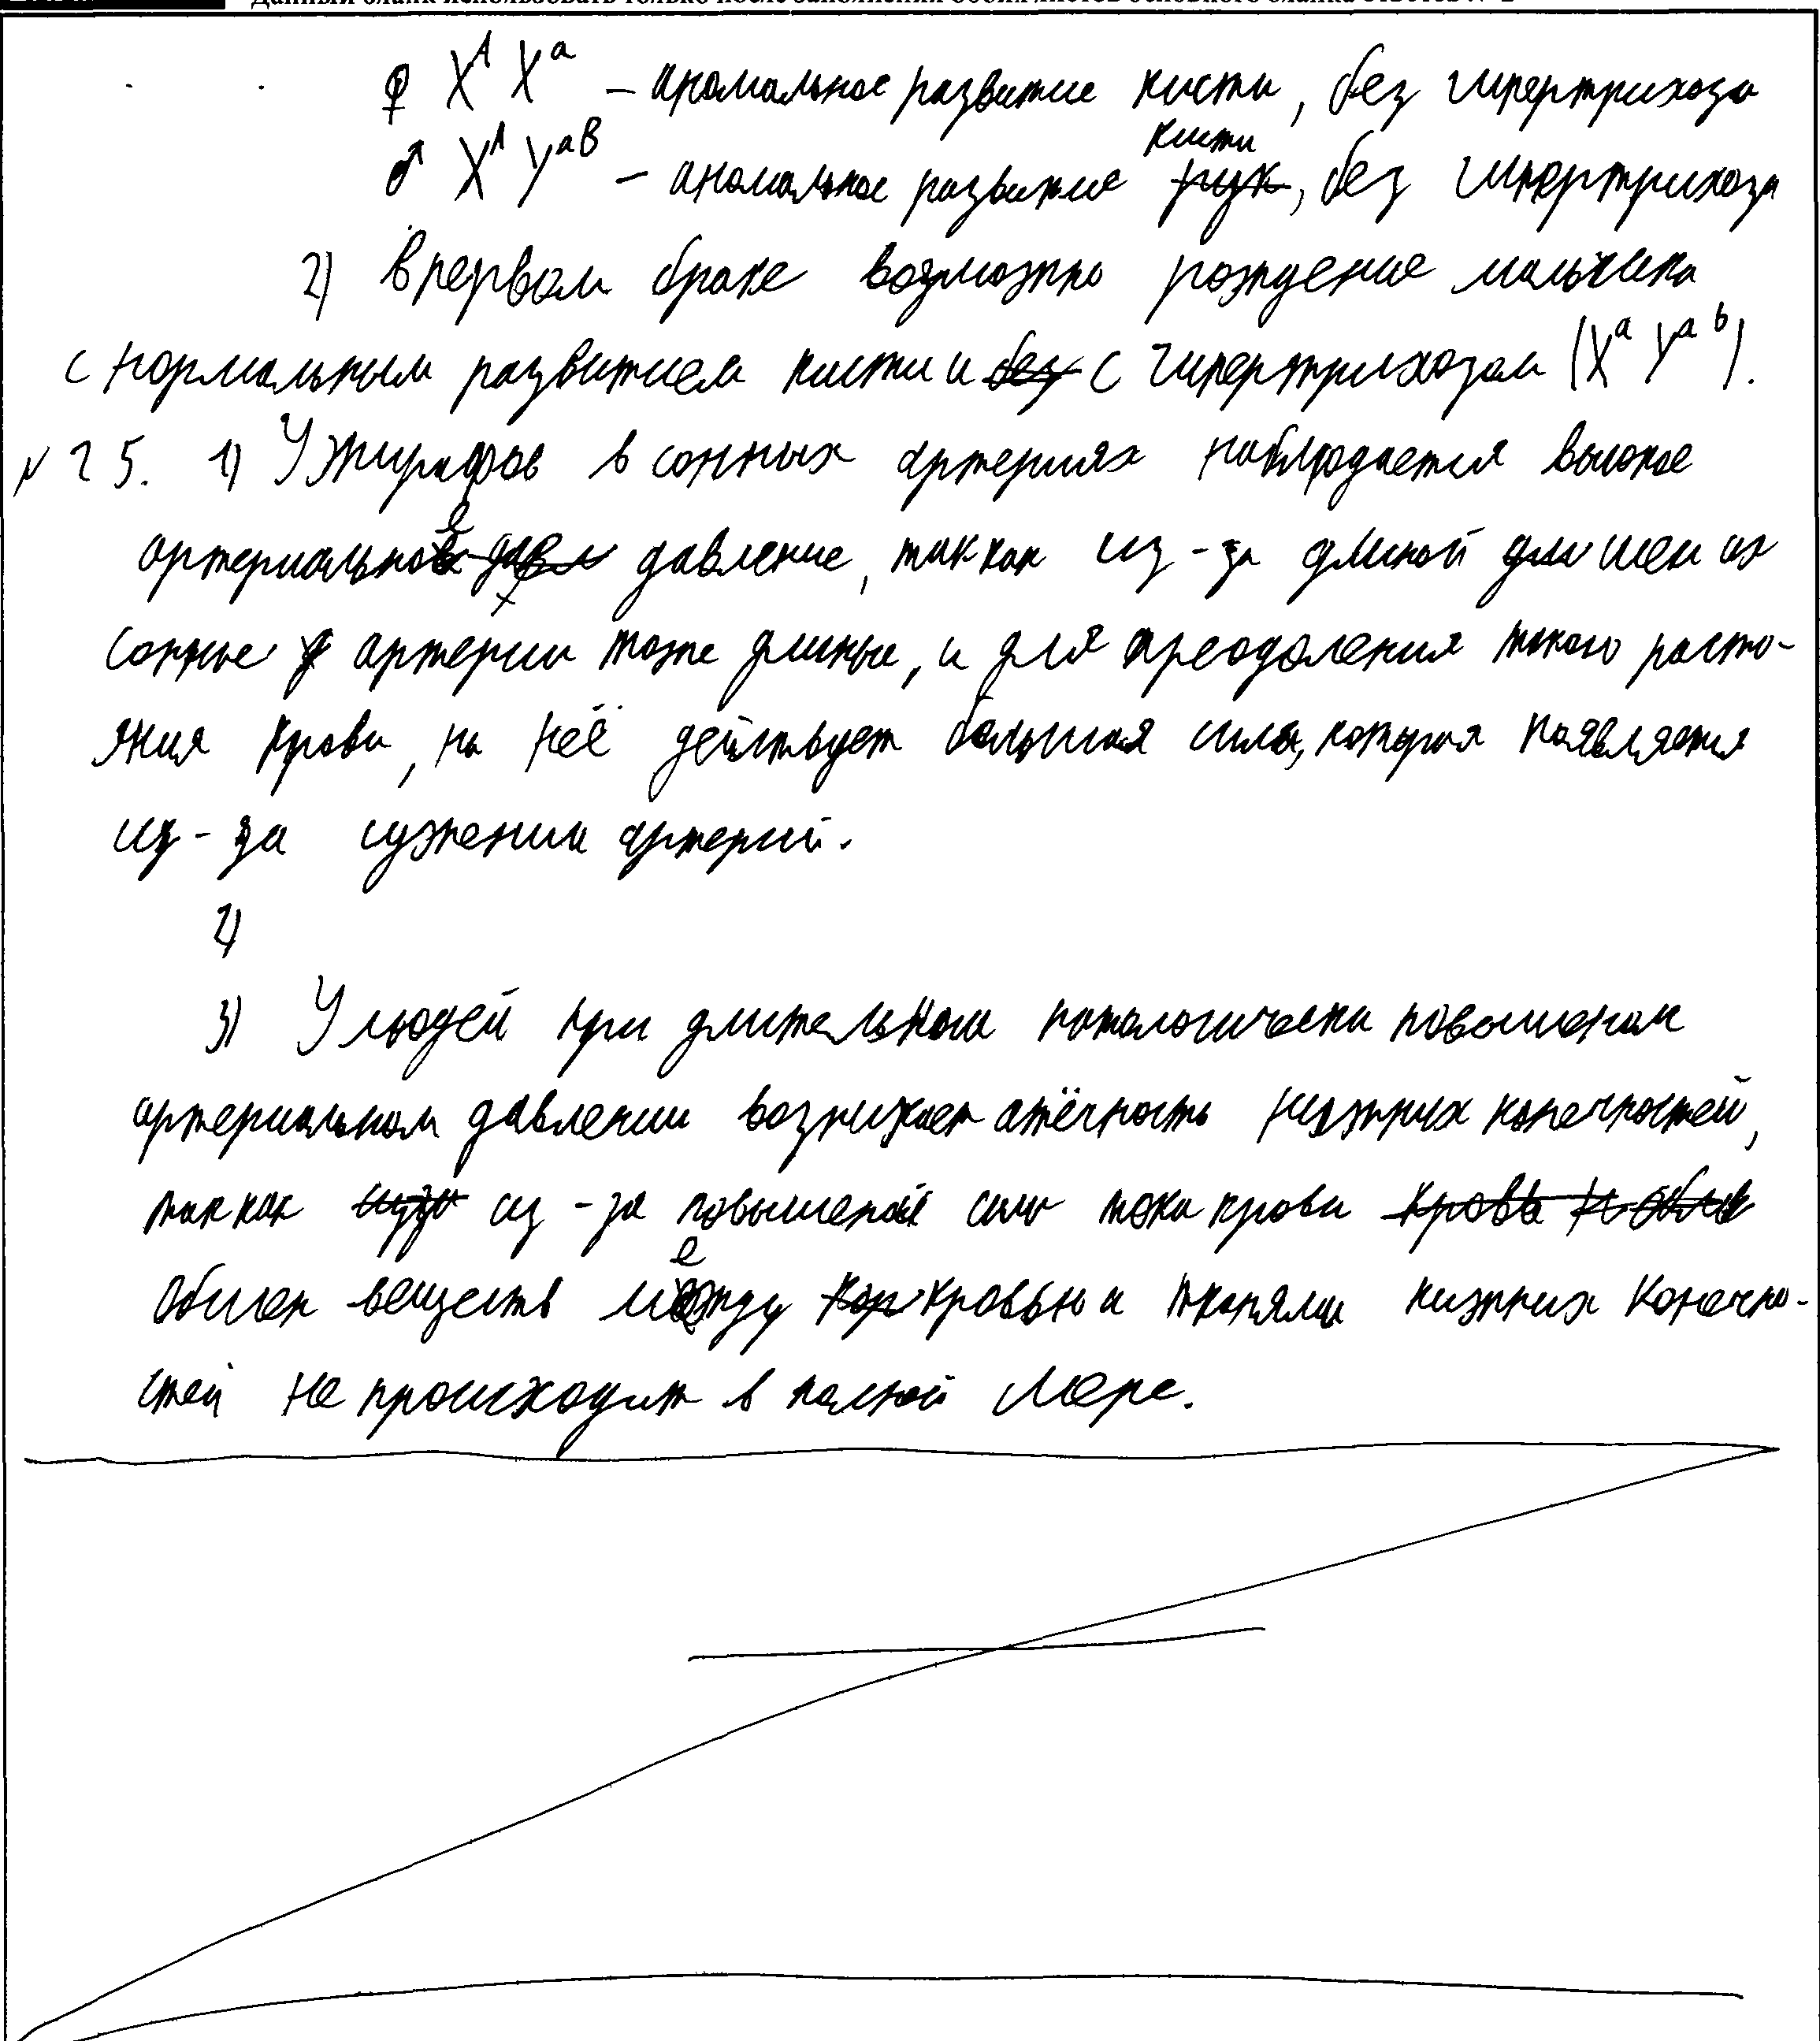 Данный бланк использовать только после заполнения обоих листов основного бланка ответов № 2
♀ X^A X^a – аномальное развитие кисти, без гипертрихоза
кисти
♂ X^A Y^aB – аномальное развитие рук, без гипертрихоза
2) В первом браке возможно рождение мальчика
с нормальным развитием кисти и без с гипертрихозом (X^a Y^ab).
№ 25. 1) У жирафов в сонных артериях наблюдается высокое
артериальное давл давление, так как из-за длиной дли шеи их
сонные артерии тоже длиные, и для преодоления такого расто-
яния крови, на неё действует большая сила, которая появляется
из-за сужения артерий.
2)
3) У людей при длительном патологически повышеном
артериальном давлении возникает отёчность нижних конечностей,
так как изза из-за повышеной силы тока крови кровь
обмен веществ между кор кровью и тканями нижних конечно-
стей не происходит в полной мере.